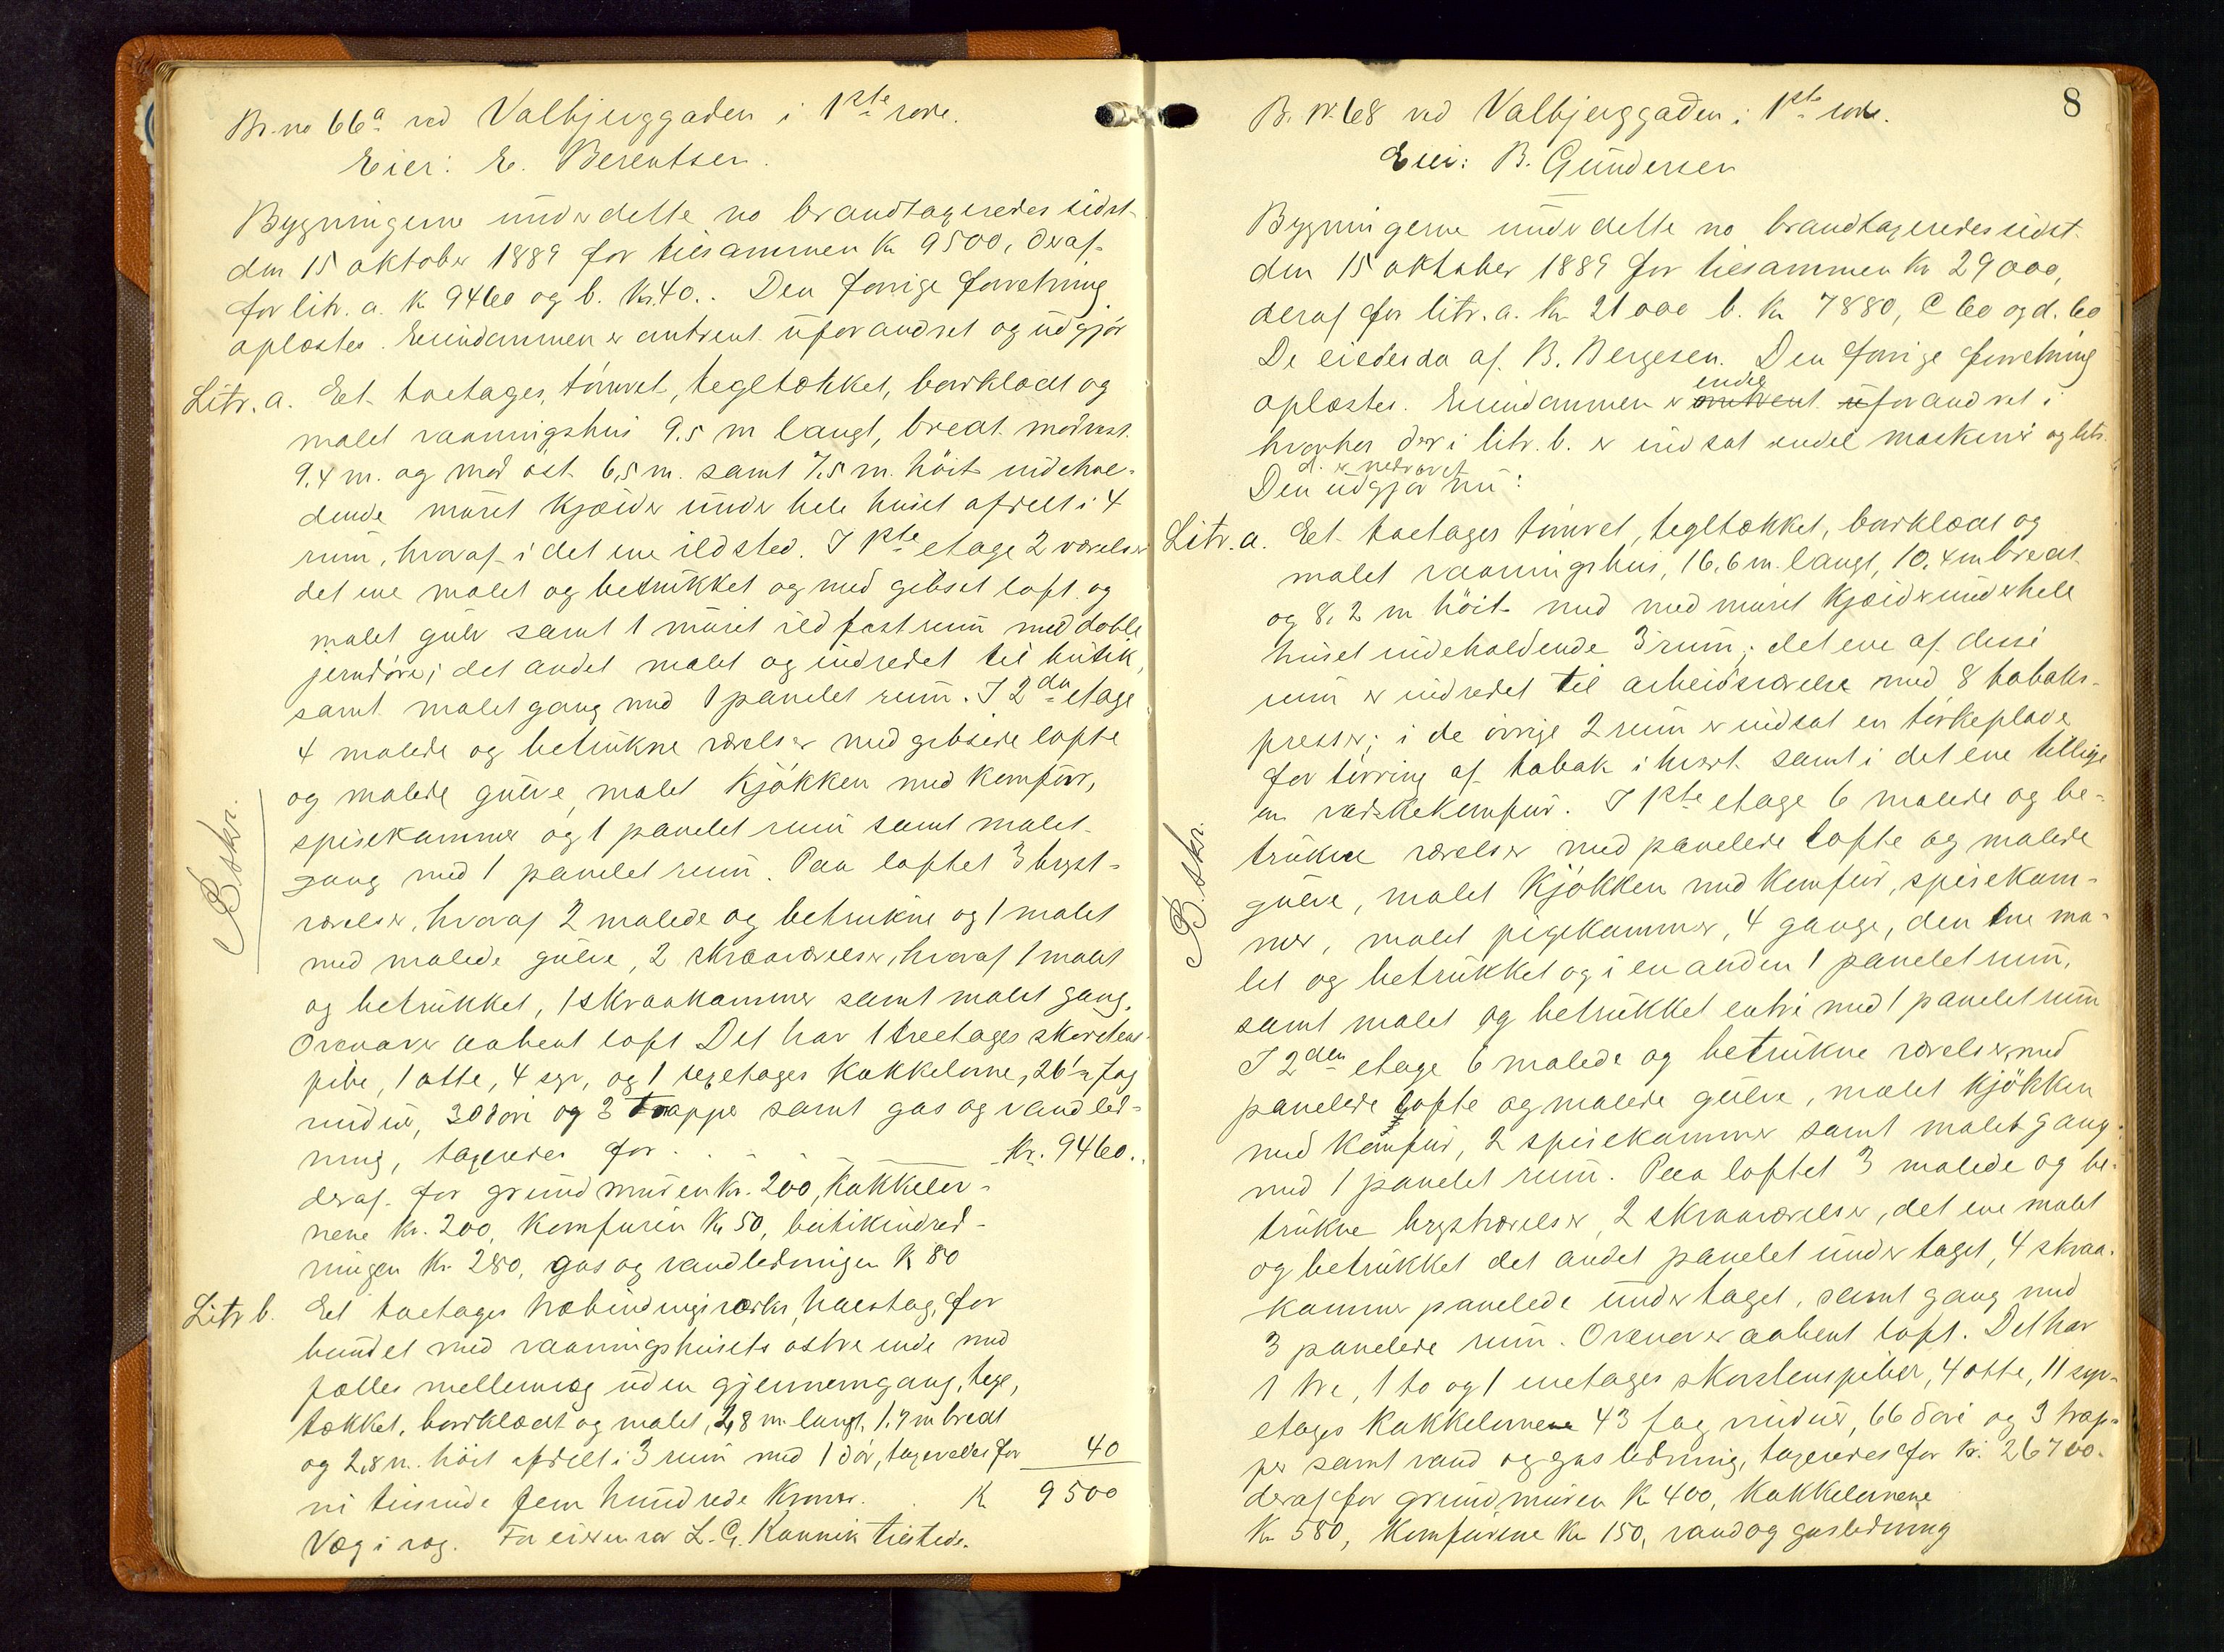 Br. no 66a ved Valbjerggaden i 1ste rode.
Eier: E. Berentsen.
Bygningerne under dette no brandtaxeredes sidst
den 15 oktober 1889 for tilsammen Kr 9500, deraf
for litr. a. Kr 9460 og b. Kr. 40.. Den forrige forretning
oplæstes. Eiendommen er omtrent uforandret og udgjør
Litr. a. Et toetages, tømret, tegltækket, bordklædt og
malet vaaningshus 9.5 m langt, bredt mod vest
9,4 m. og mod øst 6,5 m. samt 7,5 m. høit indehol-
dende muret kjælder under hele huset afdelt i 4
rum, hvoraf i det ene ildsted. I 1ste etage 2 værelser
det ene malet og betrukket og med gibset loft og
malet gulv samt 1 muret ildfast rum med doble
jerndøre; det andet malet og indredet til butik,
samt malet gang med 1 panelet rum. I 2den etage
4 malede og betrukne værelser med gibsede lofte
og malede gulve, malet kjøkken med komfur,
spisekammer og 1 panelet rum samt malet
gang med 1 panelet rum. Paa loftet 3 kvist-
værelser, hvoraf 2 malede og betrukne og 1 malet
med malede gulve, 2 skraaværelser, hvoraf 1 malet
og betrukket, 1 skraakammer samt malet gang.
Ovenover aabent loft Det har 1 treetages skorstens-
pibe, 1 otte, 4 syv, og 1 sexetages kakkelovne, 26 1/2 fag
vinduer, 30 døre og 3 trapper samt gas og vandled-
ning, taxeredes for . . . Kr. 9460..
deraf for grundmuren Kr. 200, Kakkelov-
nene Kr. 200, Komfuren Kr 50, butikindred-
ningen Kr. 280, gas og vandledningen Kr 80
Litr b. Et toetages træbindingsværks, halvtag, for
bundet med vaaningshusets østre ende med
fælles mellemvæg uden gjennemgang, tegl,
tækket, bordklædt og malet, 2,8 m. langt, 1.7 m bredt
og 2,8 m. høit afdelt i 3 rum med 1 dør, taxeredes for 40
ni tusinde fem hundrede Kroner. . Kr 9500
Væg i væg. For eieren var L. G. Kannik tilstede.
B. skr.
8
B. Nr. 68 ved Valbjerggaden i 1ste rode.
Eier: B. Gundersen
Bygningerne under dette no brandtaxeredes sidst
den 15 oktober 1889 for tilsammen Kr 29000,
deraf for litr. a. Kr 21000 b. Kr 7880, C 60 og d. 60
De eiedes da af B. Bergesen. Den forrige forretning
endel
oplæstes. Eiendommen er omtrent uforandret i
hvorhos der i litr. b. er indsat endel maskiner og litr.
d. er nedrevet
Den udgjør nu:
Litr. a. Et toetages tømret, tegltækket, bordklædt og
malet vaaningshus, 16,6 m. langt, 10,4 m bredt
og 8,2 m høit med med muret kjælder under hele
huset indeholdende 3 rum; det ene af disse
rum er indredet til arbeidsværelse med 8 tobaks-
presser; i de øvrige 2 rum er indsat en tørkeplade
for tørring af tobak i hvert samt i det ene tillige
en vadskekomfur. I 1ste etage 6 malede og be-
trukne værelser med panelede lofte og malede
gulve, malet kjøkken med komfur, spisekam-
mer, malet pigekammer, 4 gange, den ene ma-
let og betrukket og i en anden 1 panelet rum,
samt malet og betrukket entre med 1 panelet rum
I 2den etage 6 malede og betrukne værelser, med
panelede lofte og malede gulve, malet kjøkken
med komfur, 2 spisekammer samt malet gang
med 1 panelet rum. Paa loftet 3 malede og be-
trukne kvistværelser, 2 skraaværelser, det ene malet
og betrukket det andet panelet under taget, 4 skraa-
kammer panelede under taget, samt gang med
3 panelede rum. Ovenover aabent loft. Det har
1 tre, 1 to og 1 enetages skorstenspiber, 4 otte, 11 syv-
etages Kakkelovne 43 fag vinduer, 66 døre og 3 trap-
per samt vand og gasledning, taxeredes for Kr. 26700.
deraf for grundmuren Kr 400, Kakkelovnene
Kr 580, Komfurene Kr 150, vand og gasledning
B. skr.